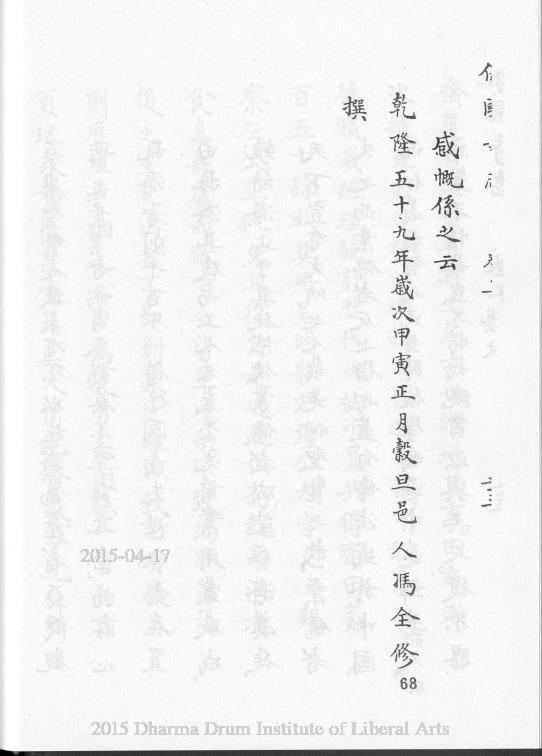 感慨係之云
乾隆五十九年歲次甲寅正月穀旦邑人馮全修
撰
68
2015-04-17
2015 Dharma Drum Institute of Liberal Arts